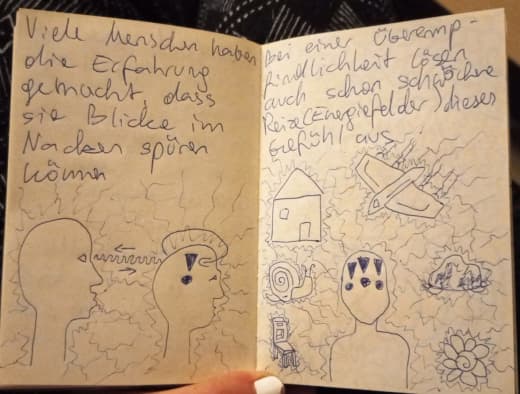 Viele Menschen haben
die Erfahrung
gemacht, dass
sie Blicke im
Nacken spüren
können
Bei einer Überemp-
findlichkeit lösen
auch schon schwächere
Reize (Energiefelder) dieses
Gefühl aus